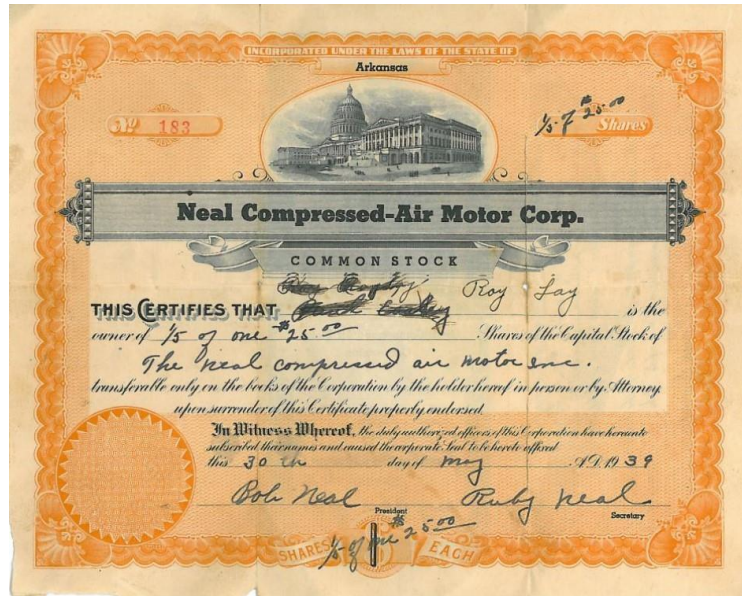 INCORPORATED UNDER THE LAWS OF THE STATE OF
Arkansas
No 183
1/5 of $25.00 Shares
Neal Compressed-Air Motor Corp.
COMMON STOCK
THIS CERTIFIES THAT Roy Fay is the
owner of 1/5 of one $25.00 Shares of the Capital Stock of
The Neal compressed air motor Inc.
transferable only on the books of the Corporation by the holder hereof in person or by Attorney
upon surrender of this Certificate properly endorsed.
In Witness Whereof, the duly authorized officers of this Corporation have hereunto
subscribed their names and caused the corporate Seal to be hereto affixed
this 30th day of May A.D. 1939
Bob Neal Ruby Neal
President Secretary
SHARES 1/5 of one $25.00 EACH